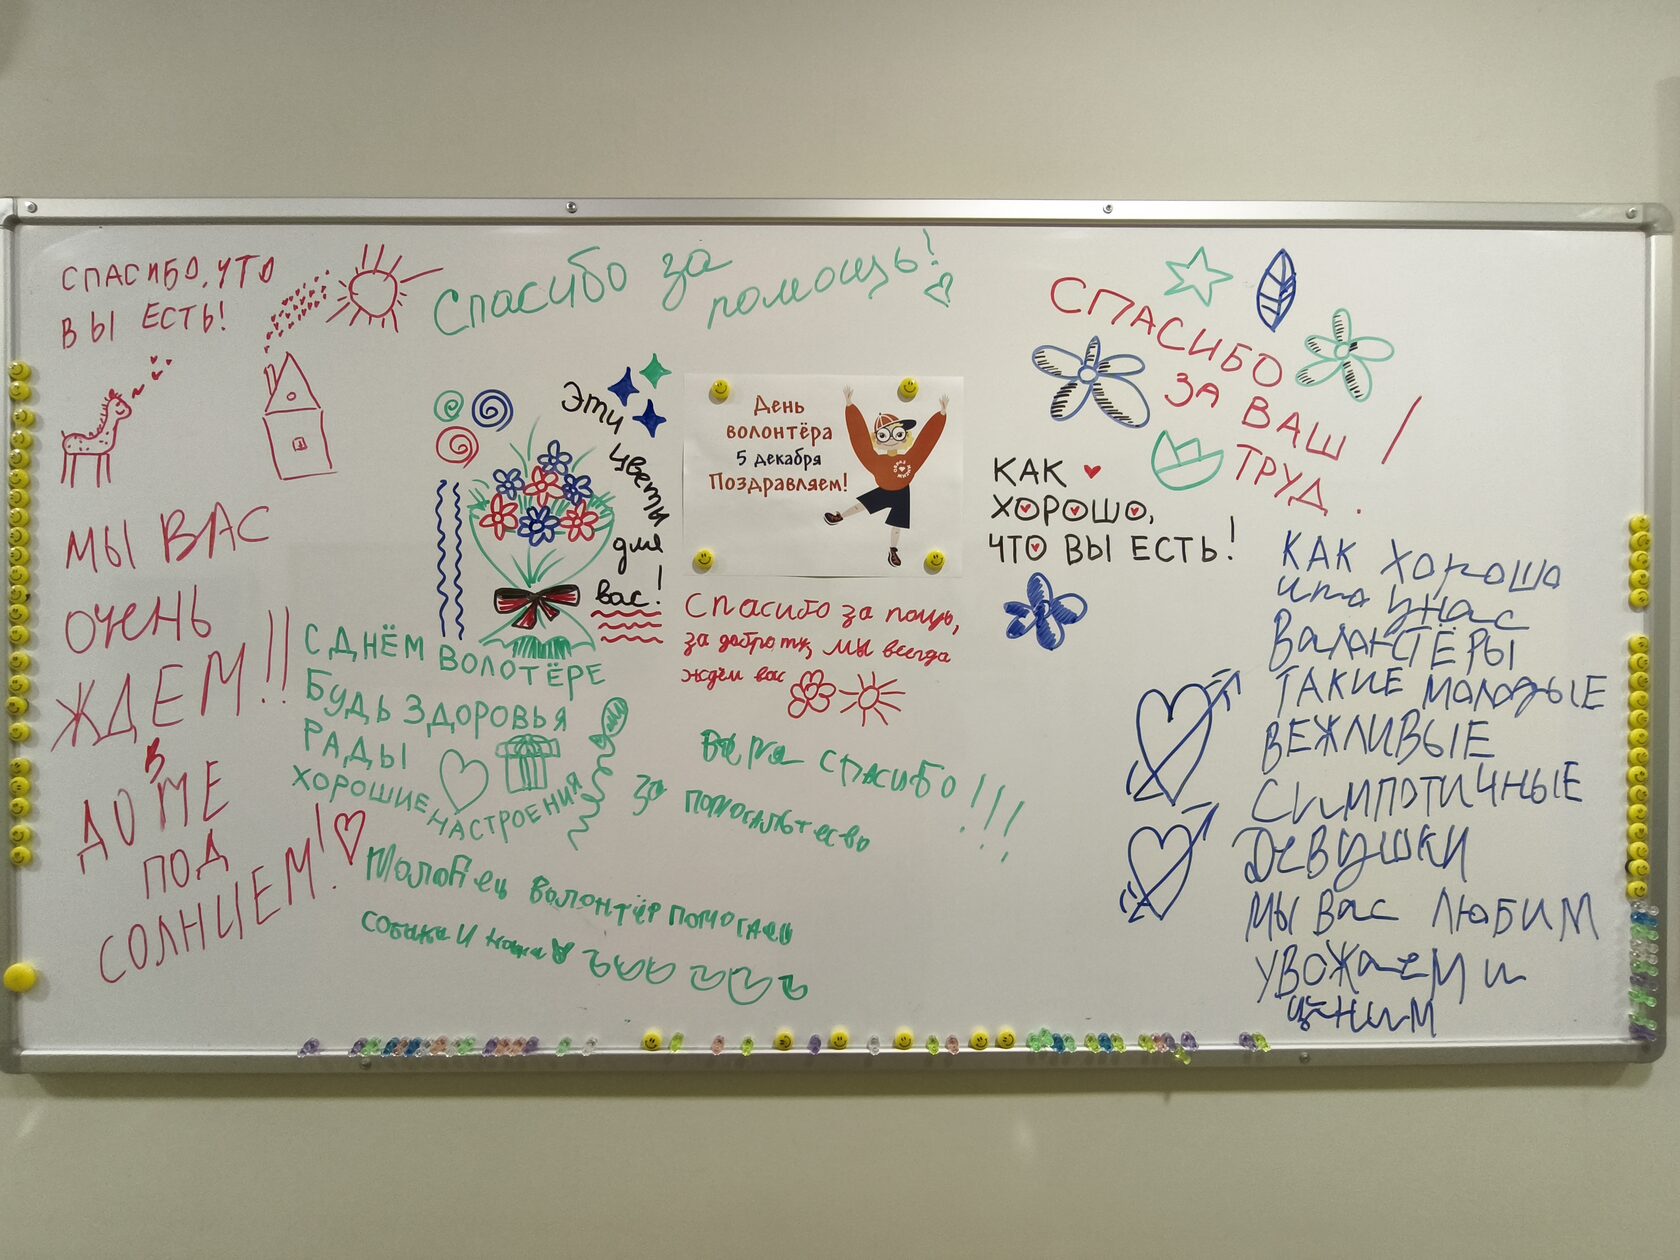 СПАСИБО, ЧТО
ВЫ ЕСТЬ!
МЫ ВАС
ОЧЕНЬ
ЖДЕМ!!
В
ДОМЕ
ПОД
СОЛНЦЕМ!
Спасибо за
помощь!
Эти
цветы
для
вас!
День
волонтёра
5 декабря
Поздравляем!
Спасибо за пощь,
за доброту, мы всегда
ждём вас
С ДНЁМ ВОЛОТЁРЕ
БУДЬ ЗДОРОВЬЯ
РАДЫ
ХОРОШИЕ НАСТРОЕНИЯ
Вера СПАСИБО!!!
За
Молодец волонтёр помогаеш
собаки и
СПАСИБО
ЗА ВАШ
ТРУД.
!
КАК
ХОРОШО,
ЧТО ВЫ ЕСТЬ!
КАК ХОРОШО
что у нас
ВалонТЁРЫ
ТАКИЕ молодЫЕ
ВЕЖЛИВЫЕ
СИМПОТИЧНЫЕ
ДЕВУШКИ
МЫ Вас ЛЮБИМ
УВОЖаеМ и
ценим